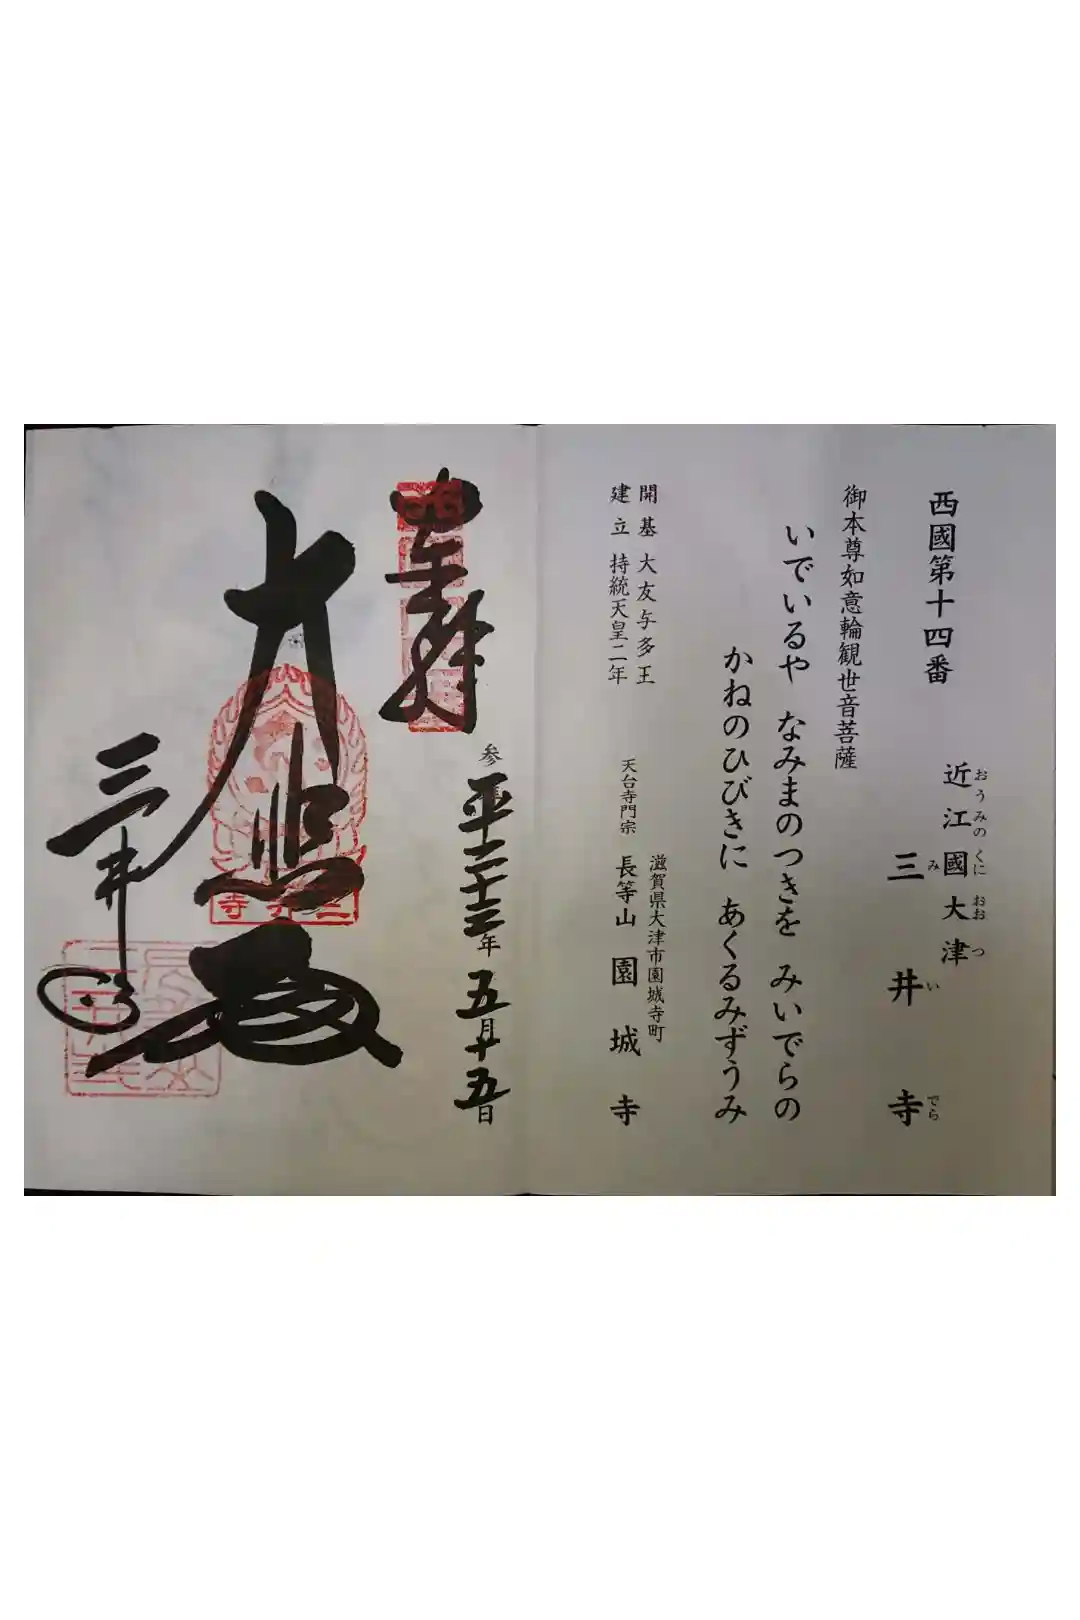 西國第十四番
近江國大津
おうみのくにおおつ
三井寺
みいでら
御本尊如意輪観世音菩薩
いでいるや なみまのつきを みいでらの
かねのひびきに あくるみずうみ
開基 大友与多王
建立 持統天皇二年
滋賀県大津市園城寺町
天台寺門宗 長等山 園城寺
奉拝
平二十三年五月十五日
大悲殿
三井寺
三井寺